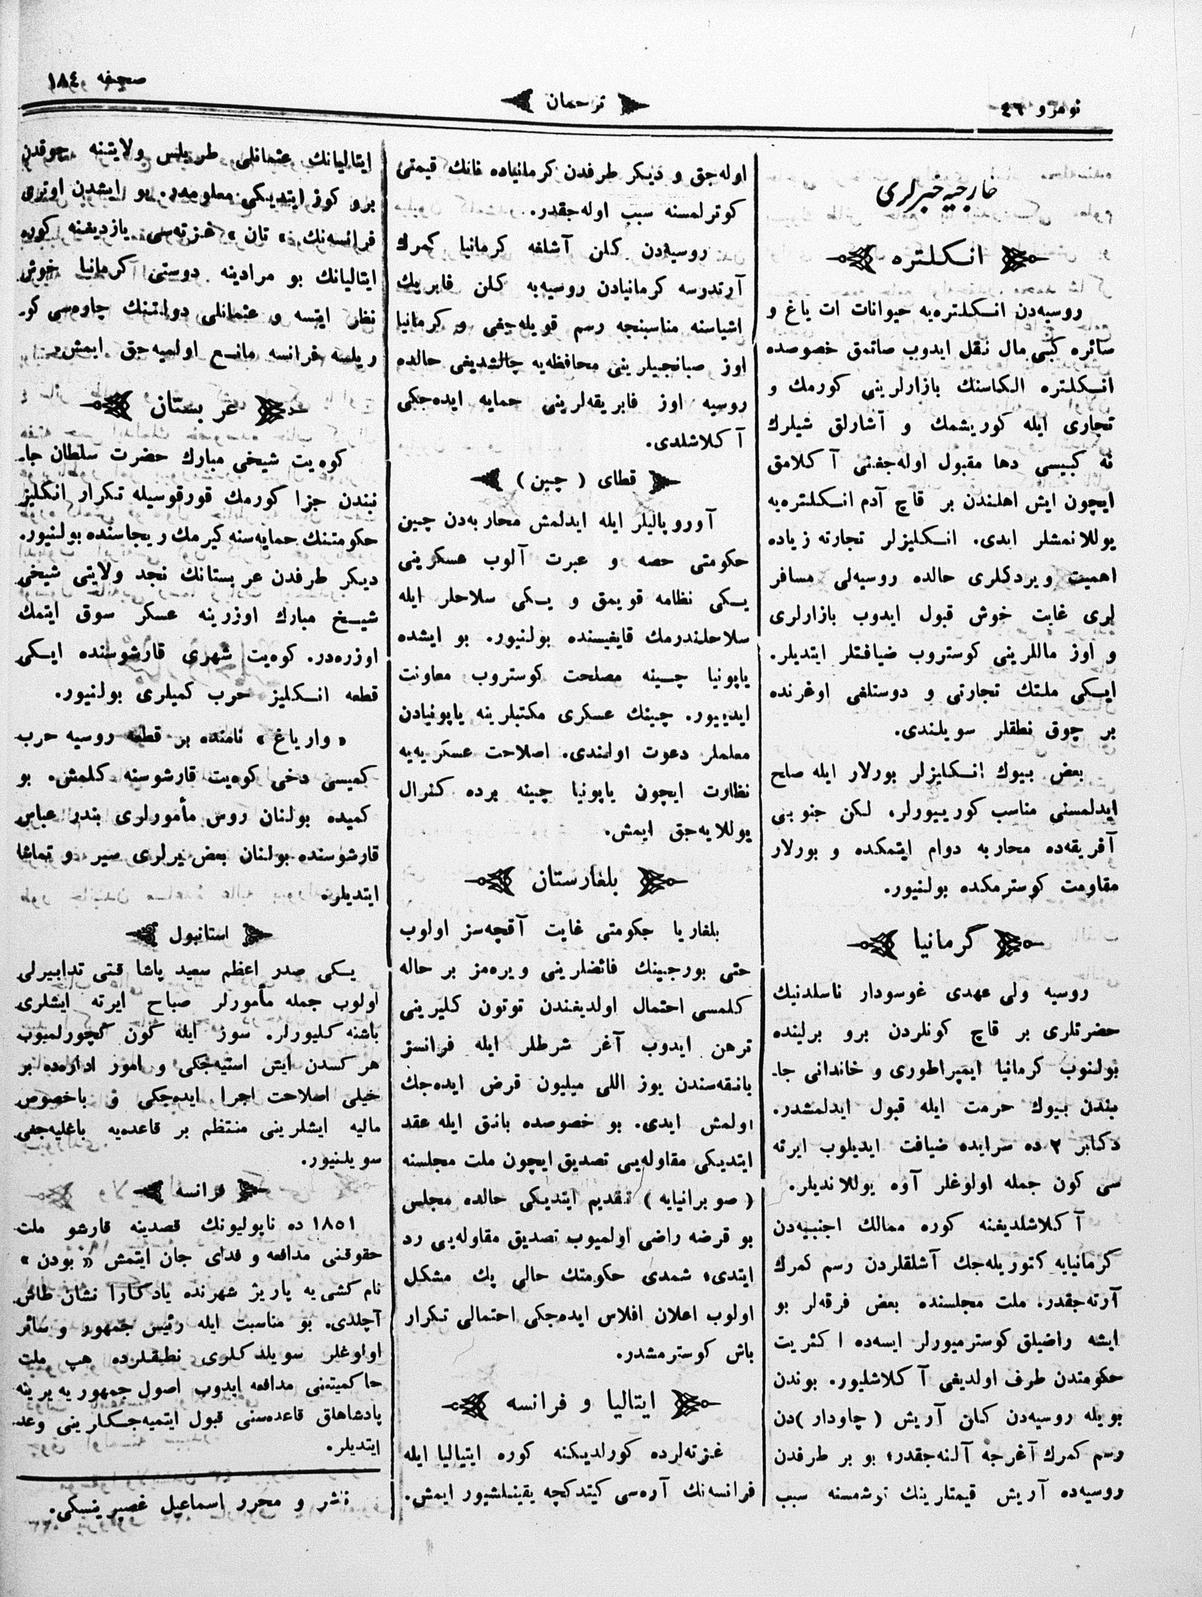 نومرو ٤٦
ترجمان
صحیفه ١٨٤
خارجیه خبرلری
انكلتره
روسیه‌دن انكلتره‌یه حیوانات ات یاغ و
سائره كبی مال نقل ایدوب صاتمق خصوصده
انكلتره الكاسنك بازارلرینی كورمك و
تجاری ایله كوریشمك و آشارلق شیلرك
نه كبیسی دها مقبول اوله‌جغنی آكلامق
ایچون ایش اهلندن بر قاچ آدم انكلتره‌یه
یوللانمشلر ایدی. انكلیزلر تجارته زیاده
اهمیت ویردكلری حالده روسیه‌لی مسافر
لری غایت خوش قبول ایدوب بازارلری
و اوز ماللرینی كوستروب ضیافتلر ایتدیلر.
ایكی ملتك تجارتی و دوستلغی اوغرنده
بر چوق نطقلر سویلندی.
بعض بیوك انكلیزلر بورلار ایله صلح
ایدلمسنی مناسب كوریبورلر. لكن جنوبی
آفریقه‌ده محاربه دوام ایتمكده و بورلار
مقاومت كوسترمكده بولنیور.
گرمانیا
روسیه ولی عهدی غوسودار ناسلدنیك
حضرتلری بر قاچ كونلردن برو برلینده
بولنوب كرمانیا ایمپراطوری و خاندانی جا-
نبندن بیوك حرمت ایله قبول ایدلمشدر.
دكابر ٢ ده سرایده ضیافت ایدیلوب ایرته
سی كون جمله اولوغلر آوه یوللاندیلر.
آكلاشلدیغینه كوره ممالك اجنبیه‌دن
كرمانیایه كتوریله‌جك آشلقلردن رسم كمرك
آرته‌جقدر. ملت مجلسنده بعض فرقه‌لر بو
ایشه راضیلق كوسترمیورلر ایسه‌ده اكثریت
حكومتدن طرف اولدیغی آكلاشلیور. بوندن
بویله روسیه‌دن كلان آریش (چاودار) دن
رسم كمرك آغرجه آلنه‌جقدر؛ بو بر طرفدن
روسیه‌ده آریش قیمتارینك توشمسنه سبب
اوله‌جق و دیكر طرفدن كرمانیاده نانك قیمتی
كوترلمسنه سبب اوله‌جقدر.
روسیه‌دن كلن آشلغه كرمانیا كمرك
آرتدرسه كرمانیادن روسیه‌یه كلن فابریك
اشیاسنه مناسبنجه رسم قویله‌جغی و كرمانیا
اوز صبانجیلرینی محافظه‌یه چالشدیغی حالده
روسیه اوز فابریقه‌لرینی حمایه ایده‌جكی
آكلاشلدی.
قطای (چین)
آوروپالیلر ایله ایدلمش محاربه‌دن چین
حكومتی حصه و عبرت آلوب عسكرینی
یكی نظامه قویمق و یكی سلاحلر ایله
سلاحلندرمك قایغیسنده بولنیور. بو ایشده
یاپونیا چینه مصلحت كوستروب معاونت
ایدییور. چینك عسكری مكتبلرینه یاپونیادن
معلملر دعوت اولندی. اصلاحت عسكریه‌یه
نظارت ایچون یاپونیا چینه برده كنرال
یوللایه‌جق ایمش.
بلغارستان
بلغاریا حكومتی غایت آقچه‌سز اولوب
حتی بورجینك فائضلرینی ویره‌مز بر حاله
كلمسی احتمال اولدیغندن توتون كلیرینی
ترهن ایدوب آغر شرطلر ایله فرانسز
بانقه‌سندن یوز اللی میلیون قرض ایده‌جك
اولمش ایدی. بو خصوصده بانق ایله عقد
ایتدیكی مقاوله‌یی تصدیق ایچون ملت مجلسنه
(صوبرانیایه) تقدیم ایتدیكی حالده مجلس
بو قرضه راضی اولمیوب تصدیق مقاوله‌یی رد
ایتدی؛ شمدی حكومتك حالی پك مشكل
اولوب اعلان افلاس ایده‌جكی احتمالی تكرار
باش كوسترمشدر.
ایتالیا و فرانسه
غزته‌لرده كورلدیكنه كوره ایتیالیا ایله
فرانسه‌نك آره‌سی كیتدكچه یقینلشیور ایمش.
ایتالیانك عثمانلی طربلس ولایتنه چوقدن
برو كوز ایتدیكی معلومدر. بو ایشدن اوتری
فرانسه‌نك «تان» غزته‌سی یازدیغنه كوره
ایتالیانك بو مرادینه دوستی كرمانیا خوش
نظار ایتسه و عثمانلی دولتنك چاوه‌سی كو-
ریلسه فرانسه مانع اولمیه‌جق ایمش.
عربستان
كوه‌یت شیخی مبارك حضرت سلطان جا-
نبندن جزا كورمك قورقوسیله تكرار انكلیز
حكومتنك حمایه‌سنه كیرمك ریجاسنده بولنیور.
دیكر طرفدن عربستانك نجد ولایتی شیخی
شیخ مبارك اوزرینه عسكر سوق ایتمك
اوزره‌در. كوه‌یت شهری قارشوسنده ایكی
قطعه انكلیز حرب كمیلری بولنیور.
«واریاغ» نامنده بر قطعه روسیه حرب
كمیسی دخی كوه‌یت قارشوسنه كلمش. بو
كمیده بولنان روس مأمورلری بندر عباس
قارشوسنده بولنان بعض یرلری سیر و تماشا
ایتدیلر.
استانبول
یكی صدر اعظم سعید پاشا قتی تدابیرلی
اولوب جمله مأمورلر صباح ایرته ایشلری
باشنه كلیورلر. سوز ایله كون كچورلمیوب
هر كسدن ایش استیه‌جكی و امور اداره‌ده بر
خیلی اصلاحت اجرا ایده‌جكی و باخصوص
مالیه ایشلرینی منتظم بر قاعده‌یه باغلیه‌جغی
سویلنیور.
فرانسه
١٨٥١ ده ناپولیونك قصدینه قارشو ملت
حقوقنی مدافعه و فدای جان ایتمش «بودن»
نام كشی‌یه پاریز شهرنده یادكارا نشان طاش
آچلدی. بو مناسبت ایله رئیس جمهور و سائر
اولوغلر سویلدكلری نطقلرده هپ ملت
حاكمیتنی مدافعه ایدوب اصول جمهوریه یرینه
پادشاهلق قاعده‌سنی قبول ایتمیه‌جكلرینی وعد
ایتدیلر.
ناشر و محرر اسماعیل غصپرینسكی.